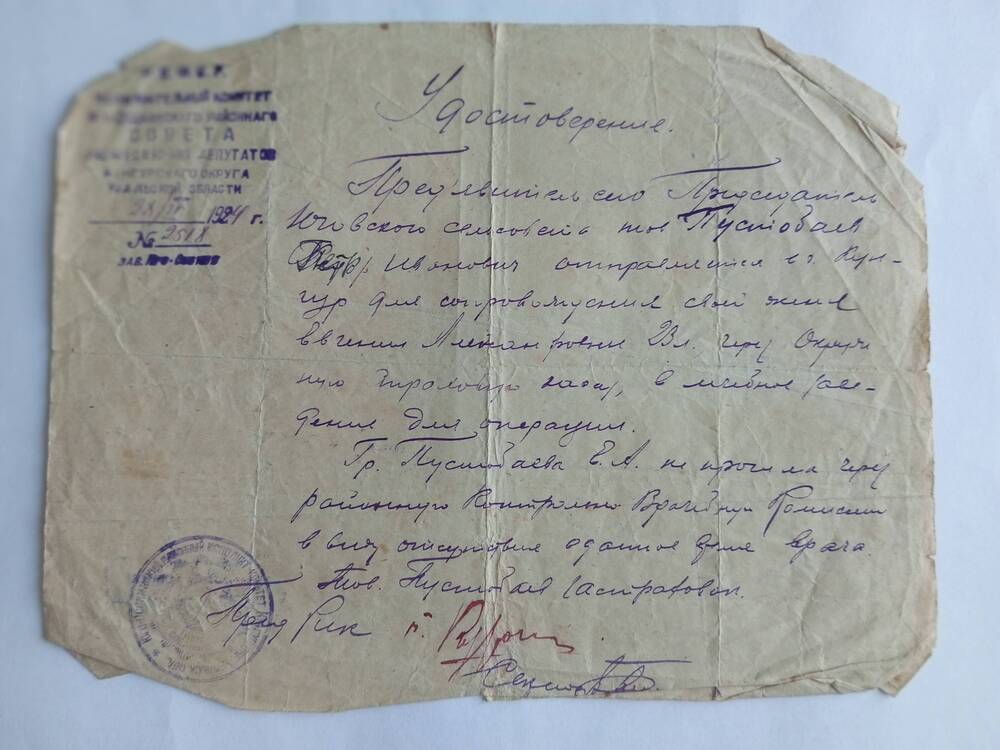 Р.С.Ф.С.Р.
ИСПОЛНИТЕЛЬНЫЙ КОМИТЕТ
РАЙОННАГО
СОВЕТА
ДЕПУТАТОВ
КУНГУРСКОГО ОКРУГА
УРАЛЬСКОЙ ОБЛАСТИ
1924 г.
№ 2518
ЗАВ.
Удостоверение.
Предъявитель сего Председатель
сельсовета тов Пустобаев
Петр Иванович отправляется в г. Кун-
гур для сопровождения свой жены
Евгении через Окруж
ную страховую кассу, в лечебное заве-
дение для операции.
Гр. Пустобаева Е. А. не прошла через
районную Контрольно Врачебную Комиссию
в виду отсутствия врача.
Тов. Пустобаев застрахован.
Пред Рик